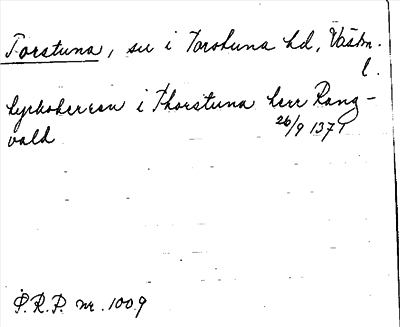 Torstuna, su i Torstuna hd, Västm.
l.
kyrkoherren i Thorstuna herr Rang-
vald
26/9 1371
P.R.P. nr. 1009